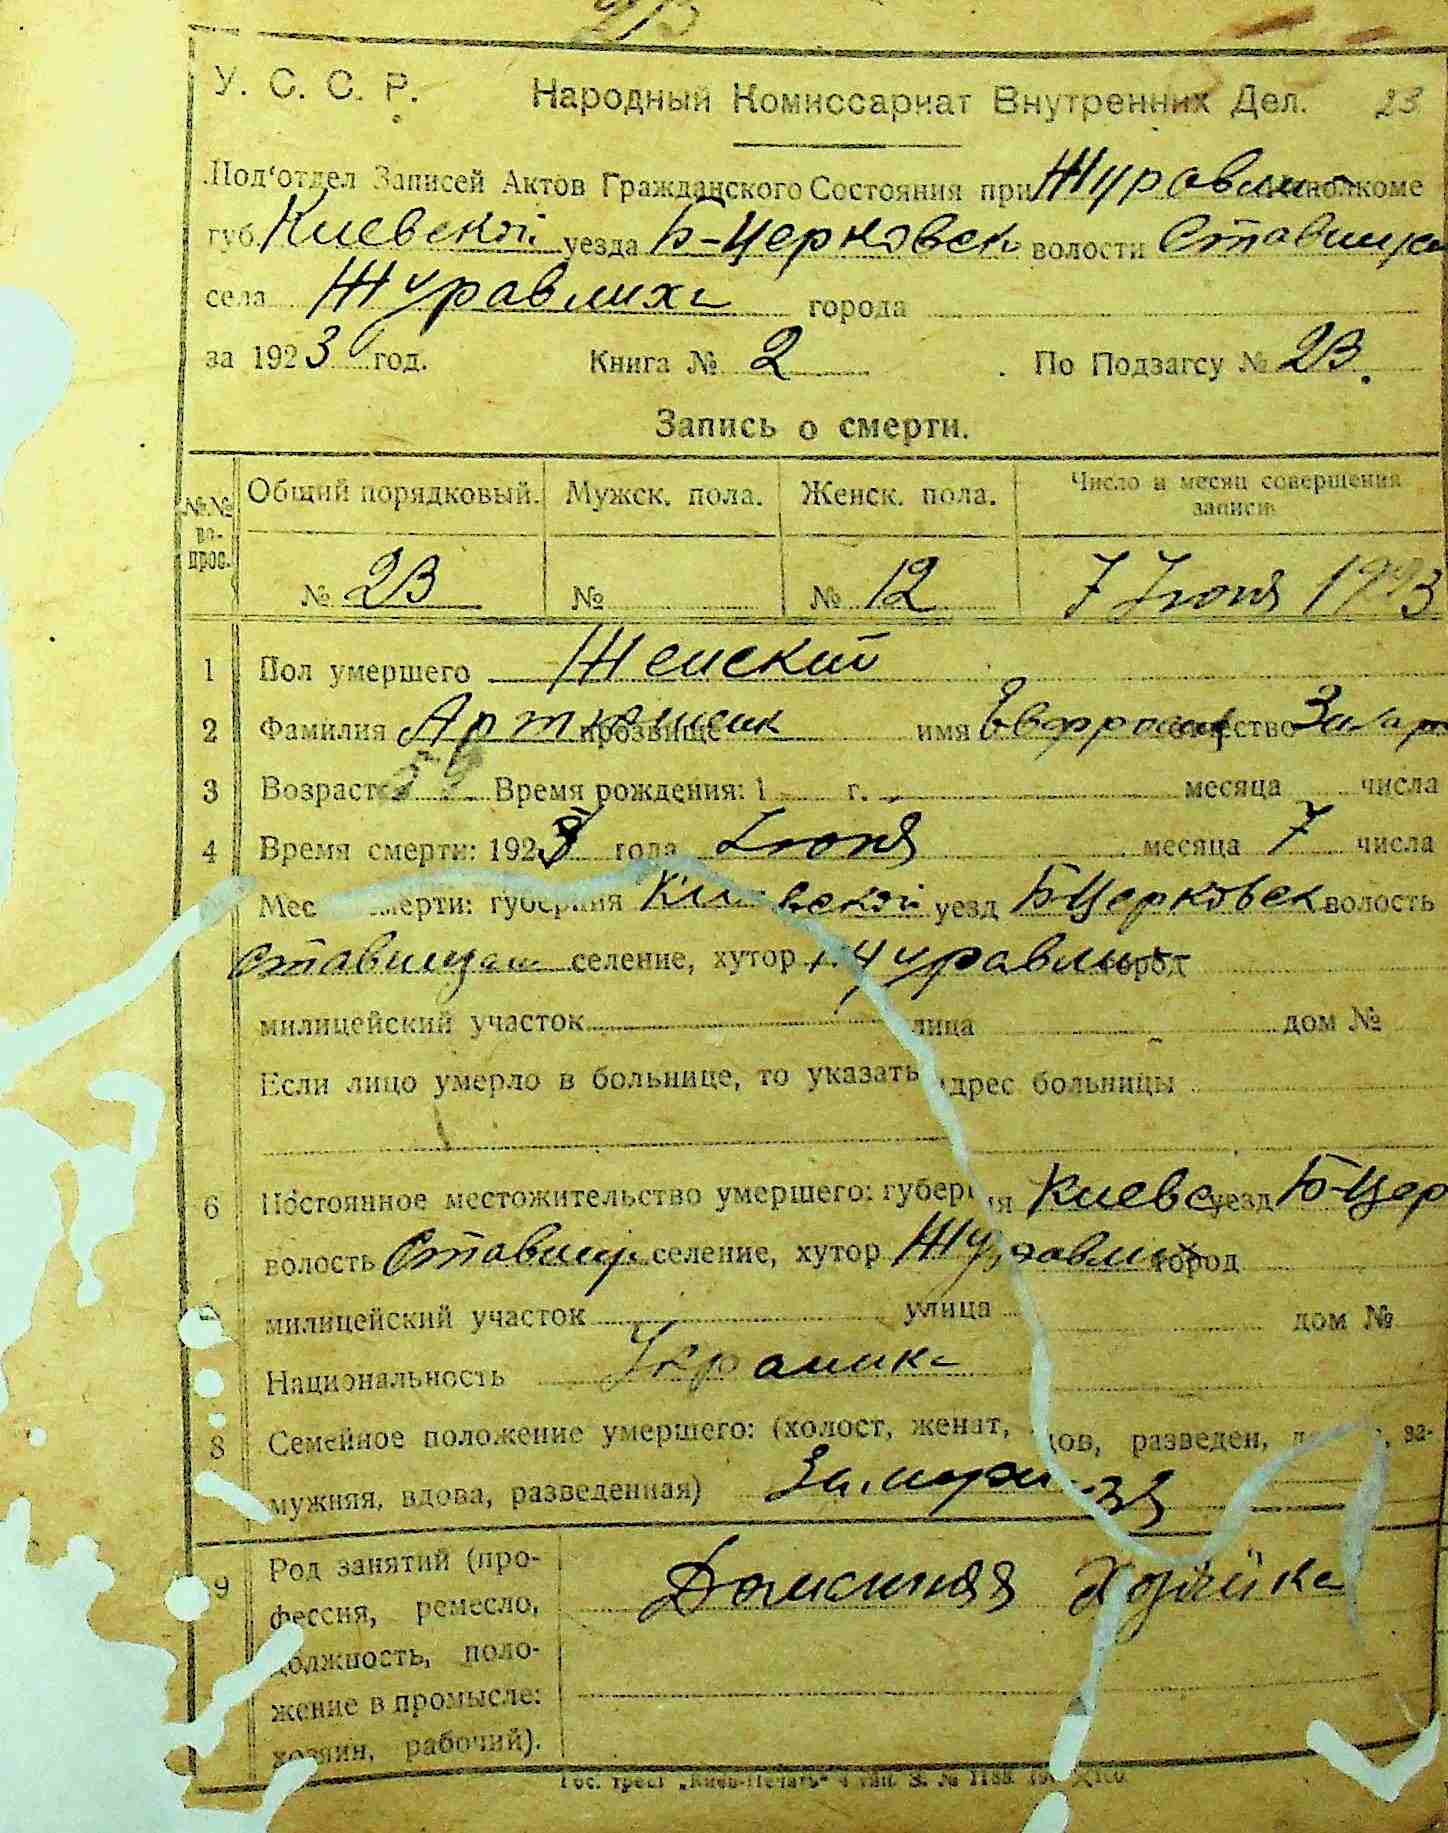 23
У. С. С. Р. Народный Комиссариат Внутренних Дел. 23
Под'отдел Записей Актов Гражданского Состояния при Журавли Исполкоме
губ. Киевской уезда Б-Церковск волости Ставищан
села Журавлиха города
за 1923 год. Книга № 2 По Подзагсу № 23.
Запись о смерти.
№.№ вопрос. Общий порядковый. Мужск. пола. Женск. пола. Число и месяц совершения записи
№ 23 № № 12 7 Июня 1923
1 Пол умершего Женский
2 Фамилия прозвище имя отчество Захар
3 Возраст Время рождения: 1 г. месяца числа
4 Время смерти: 1923 года Июня месяца 7 числа
Мес мерти: губерния Киевской уезд Б-Церковск волость
Ставищан селение, хутор Журавли город
милицейский участок лица дом №
Если лицо умерло в больнице, то указать адрес больницы
6 Постоянное местожительство умершего: губерния Киевс уезд Б-Цер
волость Ставищ селение, хутор Журавли город
милицейский участок улица дом №
Национальность Украинка
8 Семейное положение умершего: (холост, женат, дов, разведен, за-
мужняя, вдова, разведенная)
9 Род занятий (про- Домашняя Хозяйка
фессия, ремесло,
должность, поло-
жение в промысле:
хозяин, рабочий).
Гос. трест „Киев-Печать“